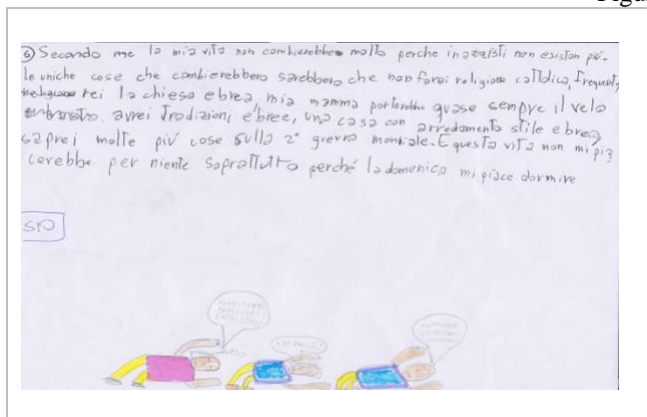 Figu
⑥ Secondo me la mia vita non cambierebbe molto perche i nazzisti non esiston più.
le uniche cose che cambierebbero sarebbero che non farei religione cattolica, frequent
rei la chiesa ebrea, mia mamma porterebbe quase sempre il velo
avrei tradizioni ebree, una casa con arredamento stile ebreo,
saprei molte più cose sulla 2° guerra mondiale. E questa vita non mi pia
cerebbe per niente soprattutto perché la domenica mi piace dormire